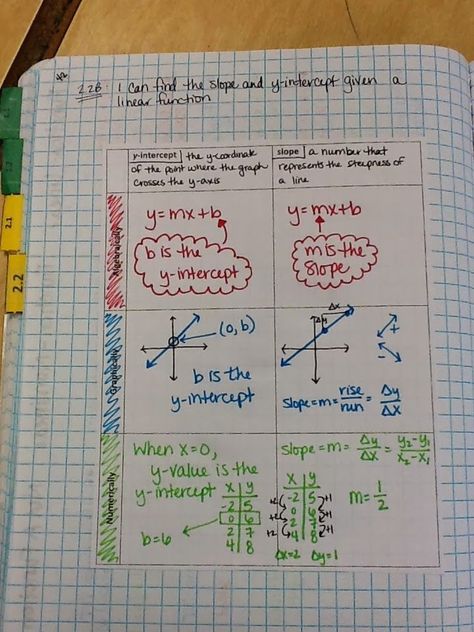 2.2B I can find the slope and y-intercept given a
linear function
y-intercept the y-coordinate
of the point where the graph
crosses the y-axis
slope a number that
represents the steepness of
a line
Algebraically
y=mx+b
b is the
y-intercept
y=mx+b
m is the
slope
Graphically
(0,b)
b is the
y-intercept
Δx
Δy
+
-
slope=m= rise/run = Δy/Δx
Numerically
When x=0,
y-value is the
y-intercept
x y
-2 5
0 6
2 7
4 8
b=6
slope=m= Δy/Δx = y₂-y₁/x₂-x₁
x y
-2 5
0 6
2 7
4 8
+2 +1
+2 +1
+2 +1
Δx=2 Δy=1
m=1/2
2.1
2.2